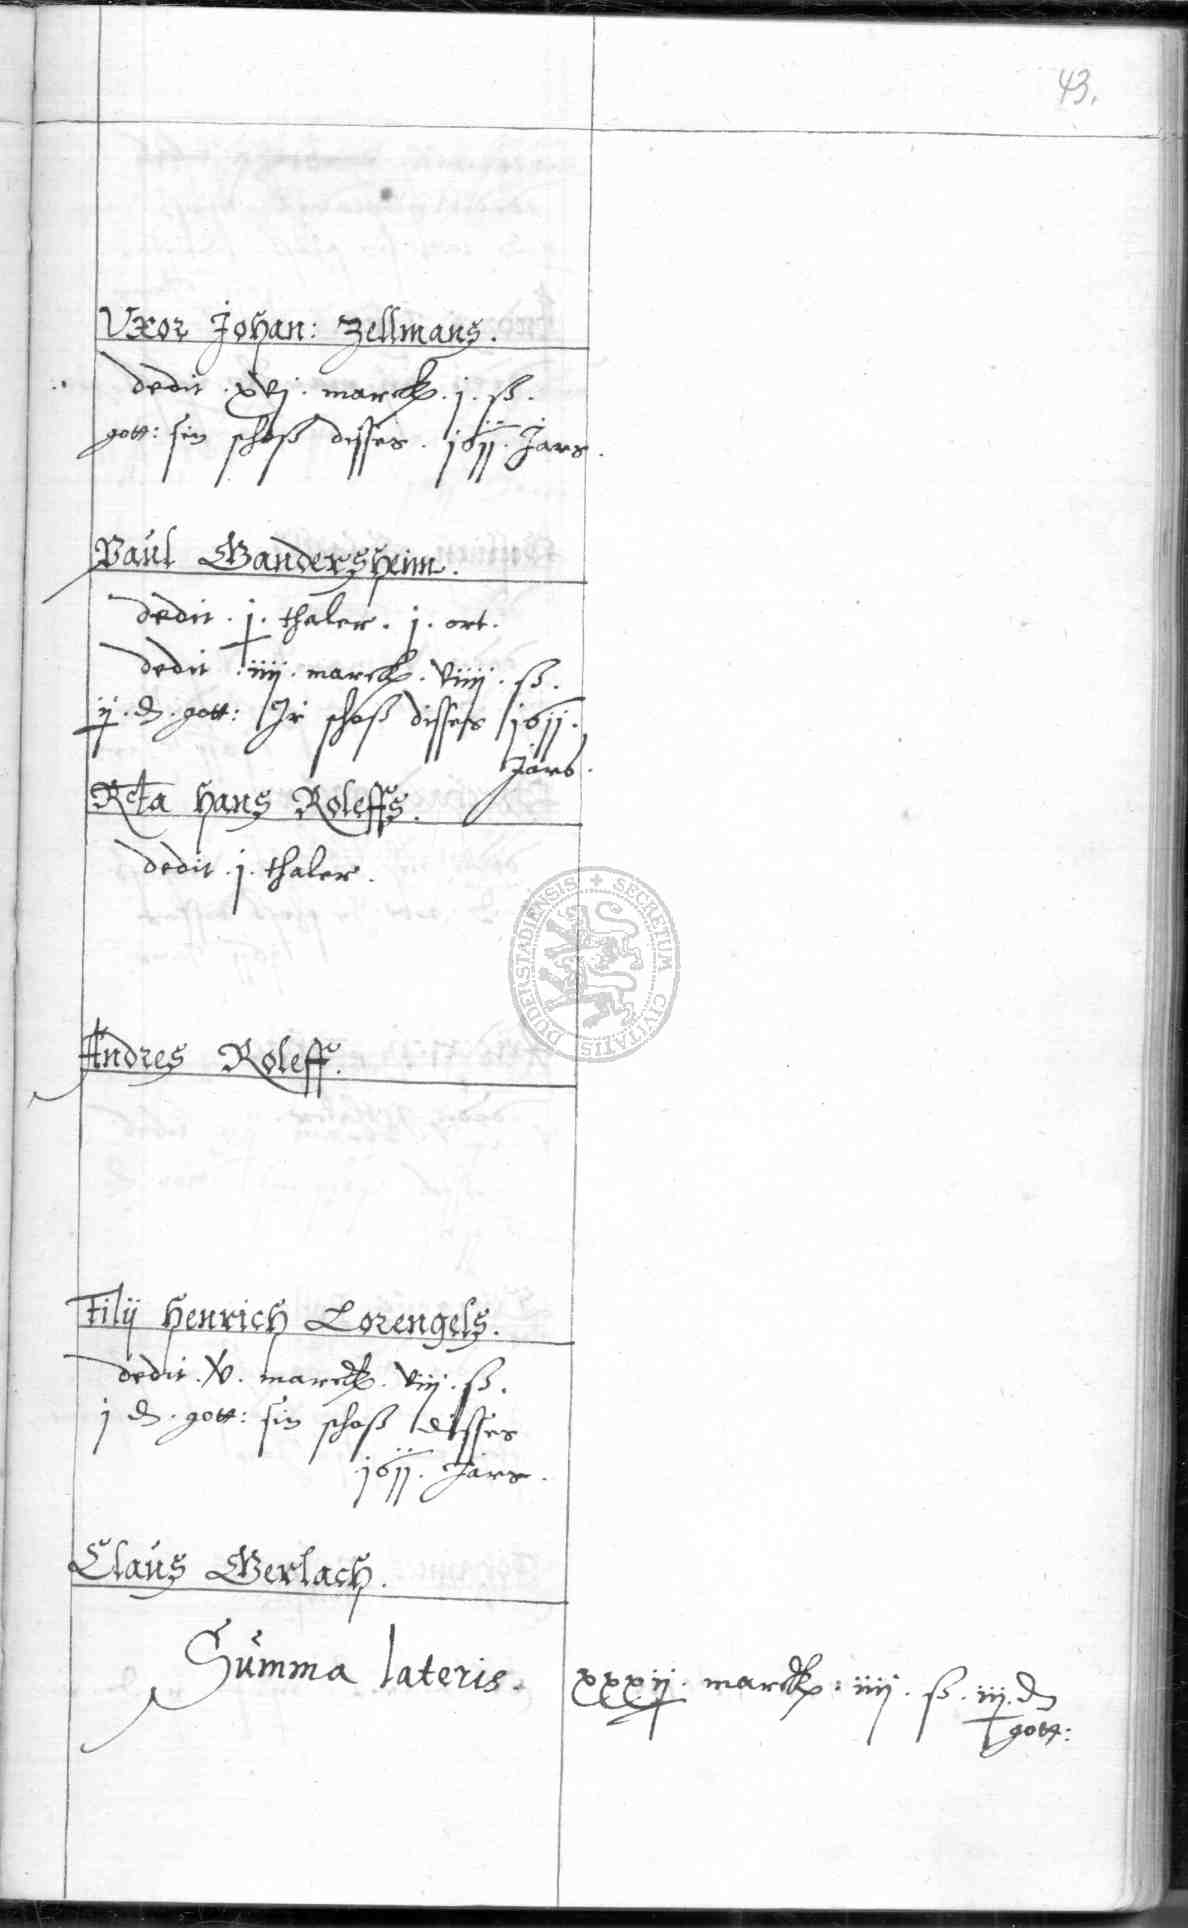 43.
Vxor Johan: Zellmans.
dedit . xvj . marck . j . ß .
gott: sin schoß disses . 1611 . Jars .
Paul Gandersheim.
dedit . j . thaler . j . ort .
dedit . iiij . marck . viiij . ß .
ij . d . gott: Jr schoß disses 1611 .
Jars .
Rcta Hans Roleffs .
dedit . j . thaler .
Andres Roleff .
Filij Henrich Lorengels .
dedit . xv . marck . viij . ß .
j d . gott: sin schoß disses
. 1611 . Jars .
Claus Gerlach .
Summa lateris . xxxvij . marck . iiij . ß . iij . d
gott:
SECRETUM CIVITATIS DUDERSTADIENSIS